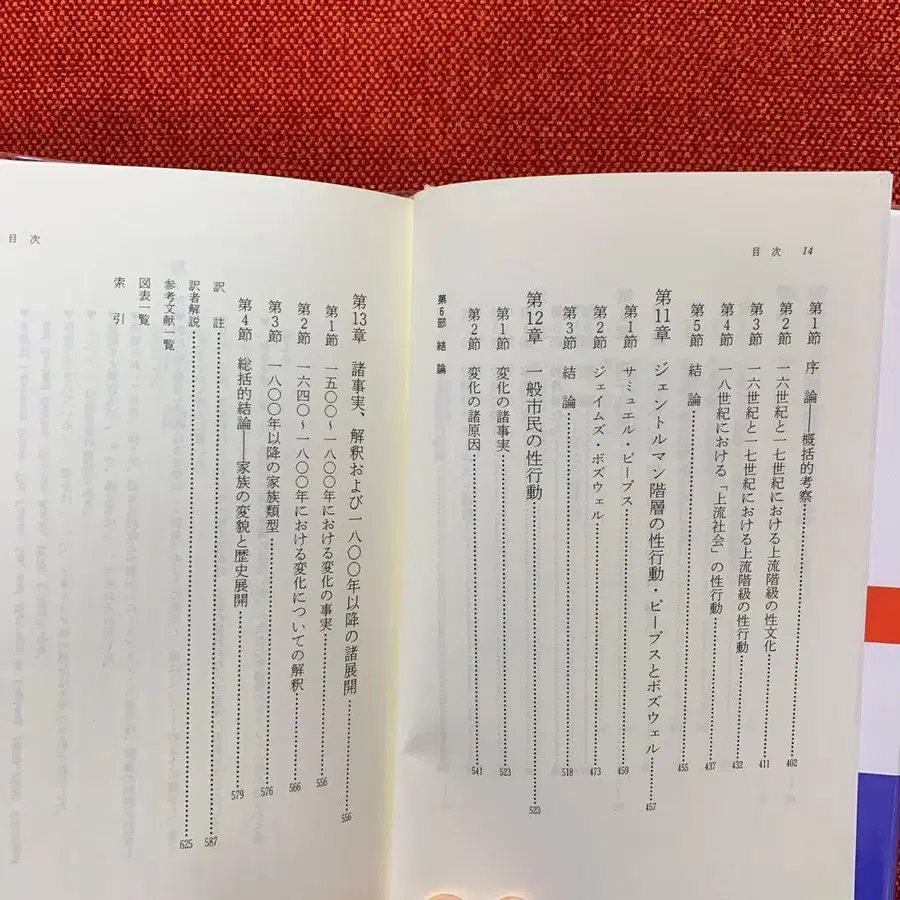 目次 14
第1節 序論――概括的考察 402
第2節 一六世紀と一七世紀における上流階級の性文化 411
第3節 一六世紀と一七世紀における上流階級の性行動 432
第4節 一八世紀における「上流社会」の性行動 437
第5節 結論 455
第11章 ジェントルマン階層の性行動・ピープスとボズウェル 457
第1節 サミュエル・ピープス 459
第2節 ジェイムズ・ボズウェル 473
第3節 結論 518
第12章 一般市民の性行動 523
第1節 変化の諸事実 523
第2節 変化の諸原因 541
第6部 結論
第13章 諸事実、解釈および一八〇〇年以降の諸展開 556
第1節 一五〇〇~一八〇〇年における変化の事実 556
第2節 一六四〇~一八〇〇年における変化についての解釈 566
第3節 一八〇〇年以降の家族類型 576
第4節 総括的結論――家族の変貌と歴史展開 579
訳註 587
訳者解説 625
参考文献一覧
図表一覧
索引
目次